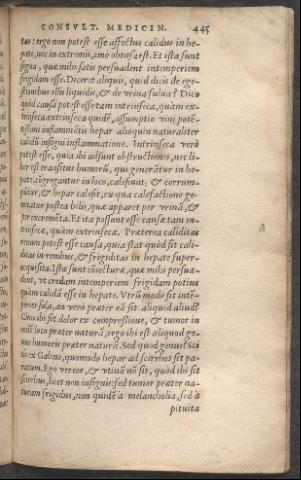 CONSVLT. MEDICIN. 445
tas: ergo non potest esse affectus calidus in he-
pate, nec in extremis, imò obtusa est. Et ista sunt
signa, quæ mihi satis persuadent intemperiem
frigidam esse. Diceret aliquis, quid dicis de ege-
stionibus illis liquidis, & de vrina fulua? Dico
quòd causa potest esse tam intrinseca, quàm ex-
trinseca. extrinseca quidẽ, assumptio vini potẽ-
tissimi inflammãtis hepar alioquin naturaliter
calidũ insigni inflammatione. Intrinseca verò
potest esse, quia ibi adsunt obstructiones, nec li-
ber est transitus humorũ, qui generãtur in he-
pate, cõgregantur in loco, calefiunt, & corrum-
pũtur, & hepar calefit, ex qua calefactione ge-
neratur postea bilis, quæ apparet per vrinã, &
per excremẽta. Et ita possunt esse causæ tam in-
trinsecæ, quàm extrinsecæ. Præterea caliditas
renum potest esse causa, quia stat quòd sit cali-
ditas in renibus, & frigiditas in hepate super-
acquisita. Istæ sunt cõiecturæ, quæ mihi persua-
dent, vt credam intemperiem frigidam potius
quàm calidã esse in hepate. Vtrũ modo sit intẽ-
peries sola, an verò præter eã sit aliquid aliud?
Cùm ibi sit dolor ex compressione, & tumor in
loco præter naturã, ergo ibi est aliquod ge-
nus humoris præter naturã. Sed quod genus? Sci
tis ex Galeno, quomodo hepar ad scirrhos sit pa-
ratum. Ego vereor, & vtinã nõ sit, quòd ibi sit
scirrhus, licet non insignis: sed tumor præter na-
turam frigidus, non quidẽ à melancholia, sed à
pituita